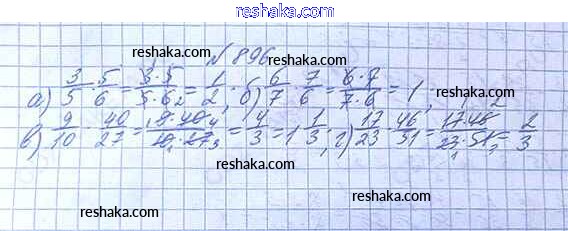 reshaka.com
reshaka.com № 896
а) 3/5 · 5/6 = 3·5/5·6 2 = 1/2; б) 6/7 · 7/6 = 6·7/7·6 = 1;
reshaka.com reshaka.com
в) 9/10 · 40/27 = 9·40 4/10·27 3 = 4/3 = 1 1/3; г) 17/23 · 46/51 = 17·46 2/23·51 3 = 2/3
reshaka.com reshaka.com
reshaka.com